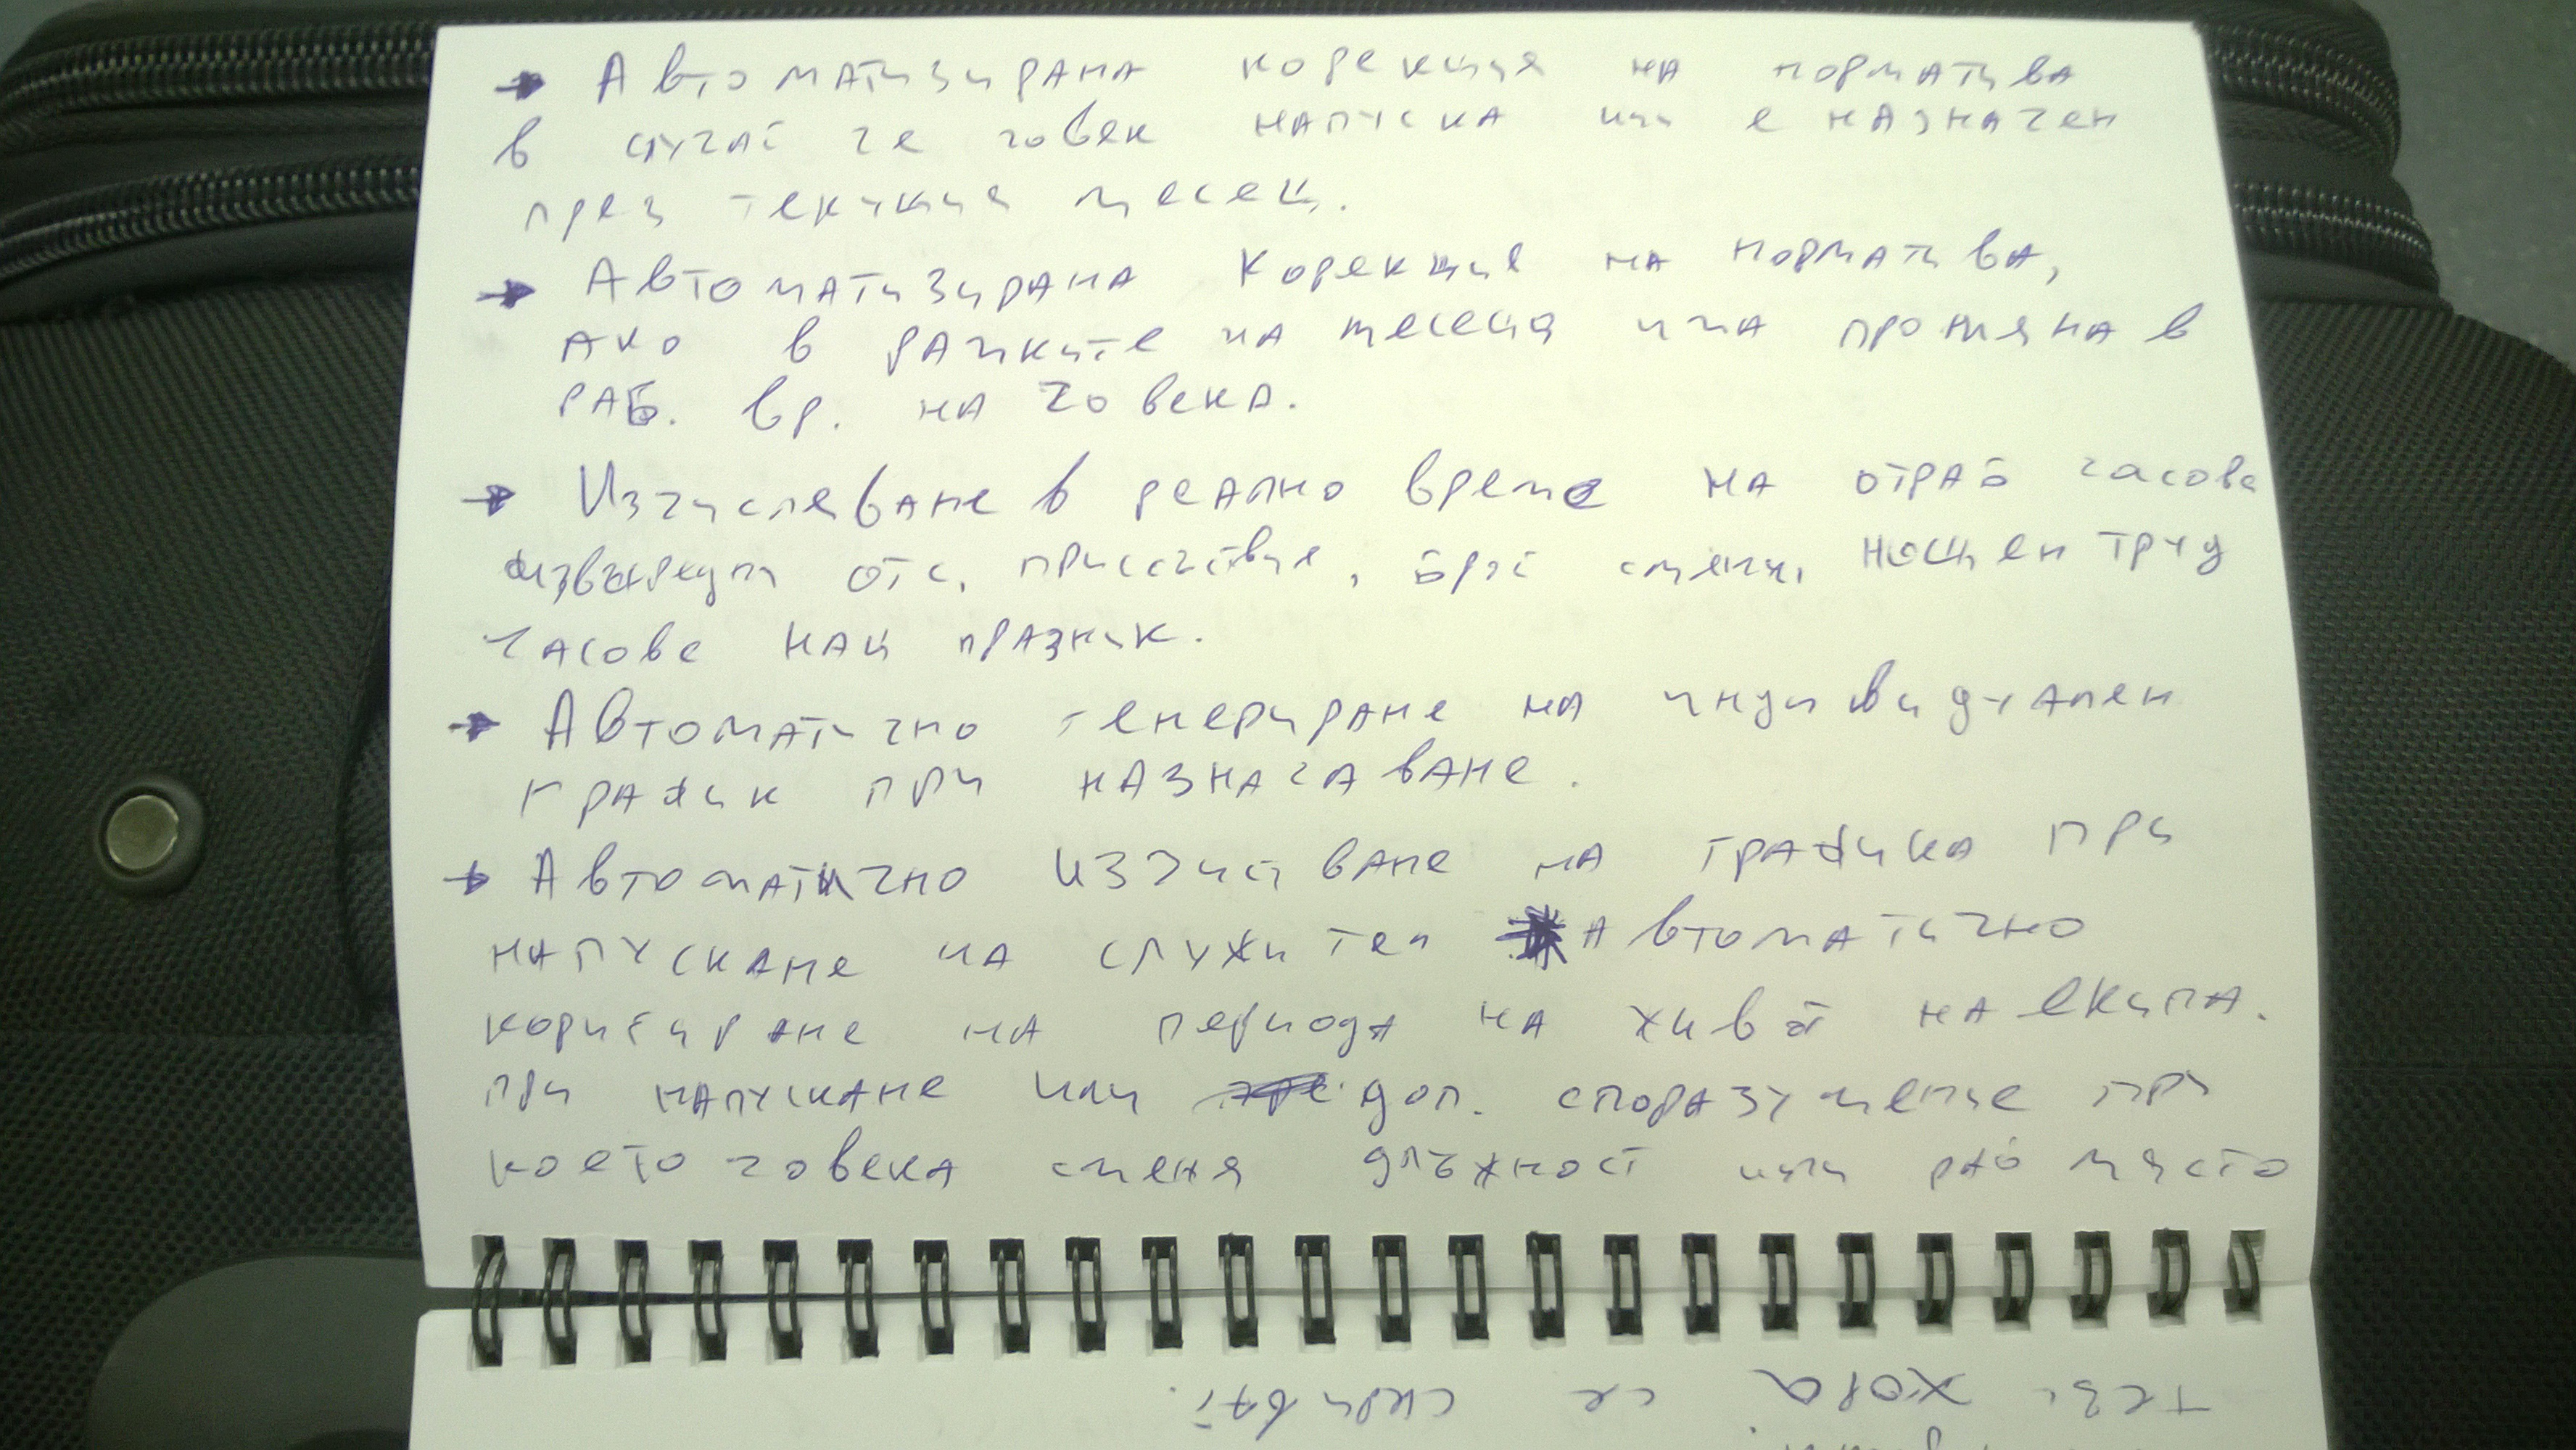 → Автоматизирана корекция на норматива
в случай че човек напуска или е назначен
през текущия месец.
→ Автоматизирана корекция на норматива,
ако в рамките на месеца има промяна в
раб. вр. на човека.
→ Изчисляване в реално време на отраб часове
извънредни отс, присъствия, брой смени, нощен труд
часове нац празник.
→ Автоматично генериране на индивидуален
график при назначаване.
→ Автоматично изчистване на графика при
напускане на служител Автоматично
коригиране на периода на живот на екипа.
при напускане или доп. споразумение при
което човека сменя длъжност или раб място
тези хора се скриват.